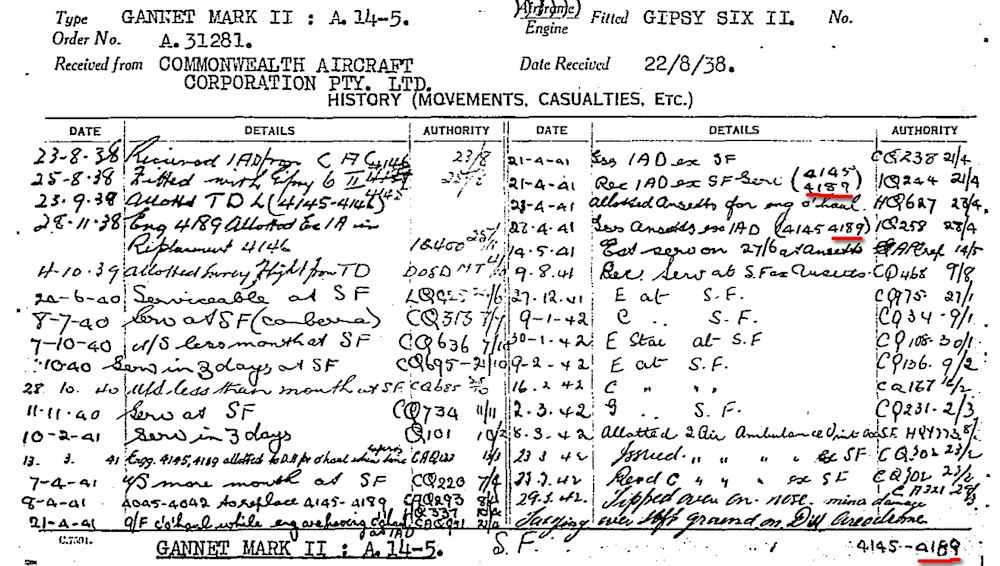 Type GANNET MARK II : A.14-5. Airframe Engine Fitted GIPSY SIX II. No.
Order No. A.31281.
Received from COMMONWEALTH AIRCRAFT CORPORATION PTY. LTD. Date Received 22/8/38.
HISTORY (MOVEMENTS, CASUALTIES, ETC.)
DATE DETAILS AUTHORITY
23-8-38 Received 1AD from CAC 23/8
25-8-38 Fitted with Gipsy 6 II 4146
23.9.38 Allotted TD L (4145-4146)
28.11.38 Eng 4189 Allotted Ex 1A in
Replacement 4146
4-10-39 allotted Survey Flight from TD
20-6-40 Serviceable at SF
8-7-40 Serv at SF (Canberra)
7-10-40 U/S less month at SF CQ636
10-40 Serv in 3 days at SF CQ695
28.10.40 U/S less than month at SF CQ685
11-11-40 Serv at SF CQ734 11/11
10-2-41 Serv in 3 days Q101 10/2
13. 3. 41 Engs. 4145, 4189 allotted to for o'haul when time
7-4-41 U/S more month at SF CQ220 7/4
8-4-41 4045-4042 to replace 4145-4189 CAQ293 8/4
Q337
21-4-41 A/F o'haul while eng
at 1AD
DATE DETAILS AUTHORITY
21-4-41 Iss 1AD ex SF CQ238 21/4
21-4-41 Rec 1AD ex SF Serv (4145 4189) 1Q244 21/4
23-4-41 allotted Ansetts for eng o'haul. HQ627 23/4
23-4-41 Iss Ansetts ex 1AD (4145 4189) 1Q258 23/4
14.5.41 Est serv on 27/6 at Ansetts 14/5
9-8.41 Rec Serv at SF ex CQ468 9/8
27.12.41 E at S.F. CQ75 27/1
9-1-42 C .. S.F. CQ34-9/1
30-1-42 E at S.F. CQ108-30/1
9-2-42 E at S.F. CQ136. 9/2
16.2.42 C " " CQ167 16/2
2.3.42 S.F. CQ231-2/3
8.3.42 Allotted 2 Air Ambulance Unit ex SF
23 3 42 Issued " " " ex SF CQ302 23/3
23.3.42 Recd C " " " ex SF CQ302 23/3
29.3.42 Tipped over on nose. minor damage
Taxying over soft ground on Aerodrome
GANNET MARK II : A.14-5. S.F. 4145--4189